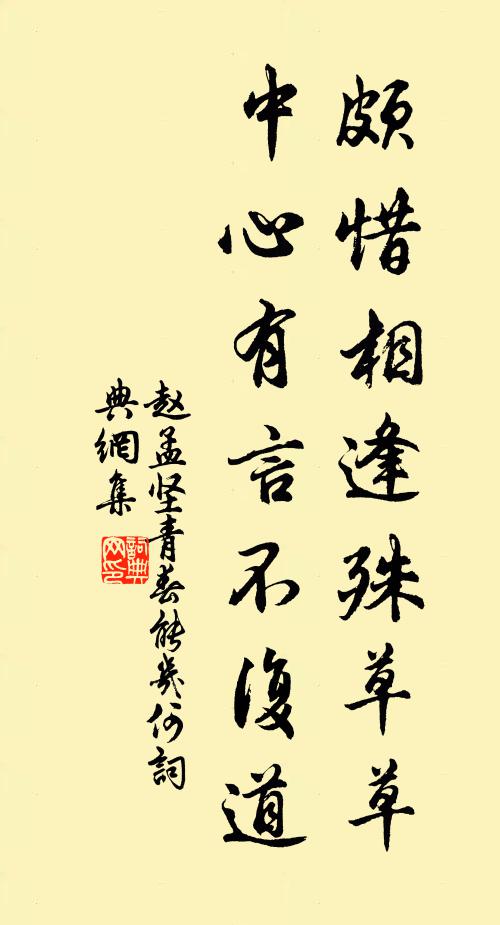 颇惜相逢殊草草
中心有言不復道
赵孟坚青春能几何詞
典網集
詞典網印